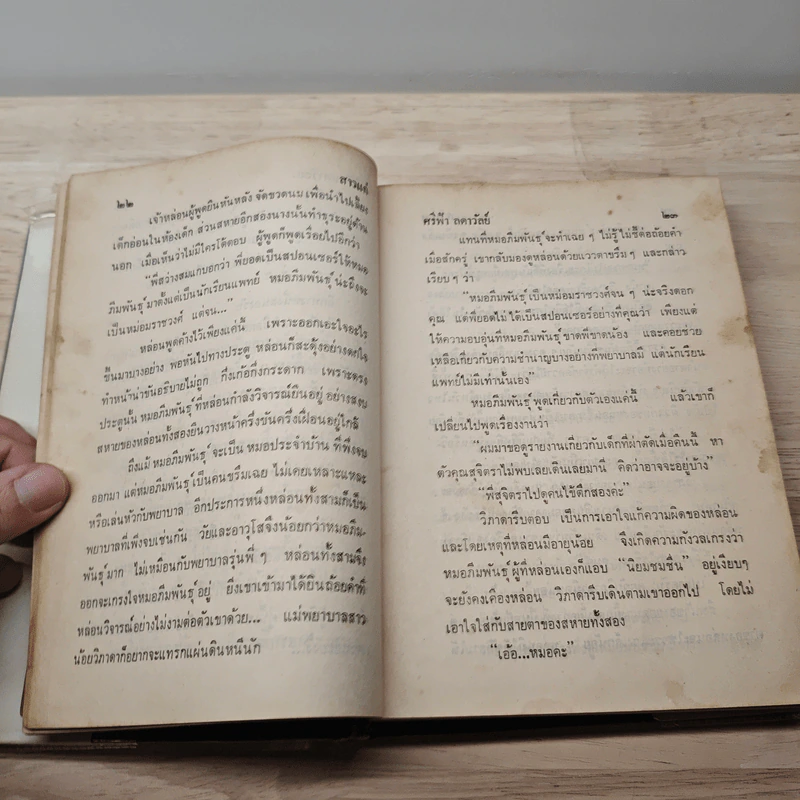 ๒๒
สาวแก่
เจ้าหล่อนผู้พูดยืนหันหลัง จัดขวดนม เพื่อนำไปเลี้ยง
เด็กอ่อนในห้องเด็ก ส่วนสหายอีกสองนางนั้นทำธุระอยู่ด้าน
นอก เมื่อเห็นว่าไม่มีใครโต้ตอบ ผู้พูดก็พูดเรื่อยไปอีกว่า
“พี่สว่างสมแกบอกว่า พี่ยอดเป็นสปอนเซอร์ให้หมอ
ภีมพันธุ์ มาตั้งแต่เป็นนักเรียนแพทย์ หมอภีมพันธุ์น่ะถึงจะ
เป็นหม่อมราชวงศ์ แต่จน...”
หล่อนพูดค้างไว้เพียงแค่นี้ เพราะออกเอะใจอะไร
ขึ้นมาบางอย่าง พอหันไปทางประตู หล่อนก็สะดุ้งอย่างตกใจ
ทำหน้าน่าขันอธิบายไม่ถูก กึ่งเก้อกึ่งกระดาก เพราะตรง
ประตูนั้น หมอภีมพันธุ์ที่หล่อนกำลังวิจารณ์ยืนอยู่ อย่างสงบ
สหายของหล่อนทั้งสองยืนวางหน้าครึ่งขันครึ่งเฝื่อนอยู่ใกล้
ถึงแม้ หมอภีมพันธุ์ จะเป็น หมอประจำบ้าน ที่พึ่งจบ
ออกมา แต่หมอภีมพันธุ์ เป็นคนขรึมเฉย ไม่เคยเหลาะแหละ
หรือเล่นหัวกับพยาบาล อีกประการหนึ่งหล่อนทั้งสามก็เป็น
พยาบาลที่เพิ่งจบเช่นกัน วัยและอาวุโสจึงน้อยกว่าหมอภีม-
พันธุ์ มาก ไม่เหมือนกับพยาบาลรุ่นพี่ ๆ หล่อนทั้งสามจึง
ออกจะเกรงใจหมอภีมพันธุ์ อยู่ ยิ่งเขาเข้ามาได้ยินถ้อยคำที่
หล่อนวิจารณ์อย่างไม่งามต่อตัวเขาด้วย... แม่พยาบาลสาว
น้อยวิภาดาก็อยากจะแทรกแผ่นดินหนีนัก
ศรีฟ้า ลดาวัลย์
๒๓
แทนที่หมอภีมพันธุ์จะทำเฉย ๆ ไม่รู้ไม่ชี้ต่อถ้อยคำ
เมื่อสักครู่ เขากลับมองดูหล่อนด้วยแววตาขรึม ๆ และกล่าว
เรียบ ๆ ว่า
“หมอภีมพันธุ์ เป็นหม่อมราชวงศ์จน ๆ น่ะจริงดอก
คุณ แต่พี่ยอดไม่ได้เป็นสปอนเซอร์อย่างที่คุณว่า เพียงแต่
ให้ความอบอุ่นที่หมอภีมพันธุ์ ขาดพี่ขาดน้อง และคอยช่วย
เหลือเกี่ยวกับความชำนาญบางอย่างที่พยาบาลมี แต่นักเรียน
แพทย์ไม่มีเท่านั้นเอง”
หมอภีมพันธุ์ พูดเกี่ยวกับตัวเองแค่นี้ แล้วเขาก็
เปลี่ยนไปพูดเรื่องงานว่า
“ผมมาขอดูรายงานเกี่ยวกับเด็กที่ผ่าตัดเมื่อคืนนี้ หา
ตัวคุณสุจิตราไม่พบเลยเดินเลยมานี่ คิดว่าอาจจะอยู่บ้าง”
“พี่สุจิตราไปดูคนไข้ตึกสองค่ะ”
วิภาดารีบตอบ เป็นการเอาใจแก้ความผิดของหล่อน
และโดยเหตุที่หล่อนมีอายุน้อย จึงเกิดความกังวลเกรงว่า
หมอภีมพันธุ์ ผู้ที่หล่อนเองก็แอบ “นิยมชมชื่น” อยู่เงียบๆ
จะยังคงเคืองหล่อน วิภาดารีบเดินตามเขาออกไป โดยไม่
เอาใจใส่กับสายตาของสหายทั้งสอง
“เอ้อ...หมอคะ”